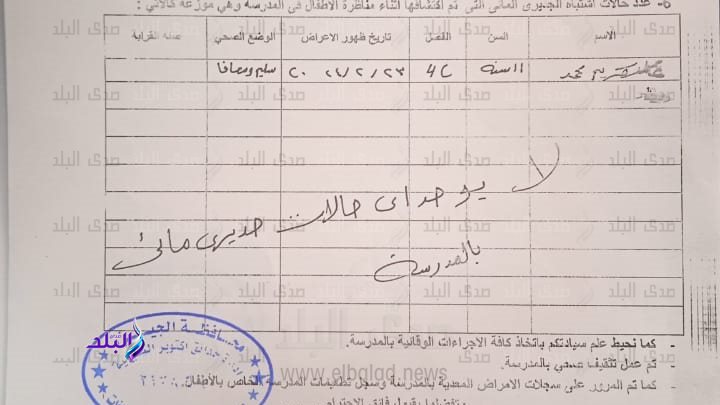 5- عدد حالات اشتباه الجديرى المائى التى تم اكتشافها اثناء مناظرة الاطفال فى المدرسة وهى موزعة كالاتي :
الاسم السن الفصل تاريخ ظهور الاعراض الوضع الصحي صلة القرابة
محمد ١١ سنه 4C سليم ومعافا
لا يوجد اى حالات جديرى مائى
بالمدرسة
- كما نحيط علم سيادتكم باتخاذ كافة الاجراءات الوقائية بالمدرسة.
- تم عمل تثقيف صحي بالمدرسة.
- كما تم المرور على سجلات الامراض المعدية بالمدرسة وسجل تطعيمات المدرسة الخاص بالأطفال.
وتفضلوا بقبول فائق الاحترام
محافظة الجيزة
حدائق اكتوبر
صدى البلد
elbalad.news